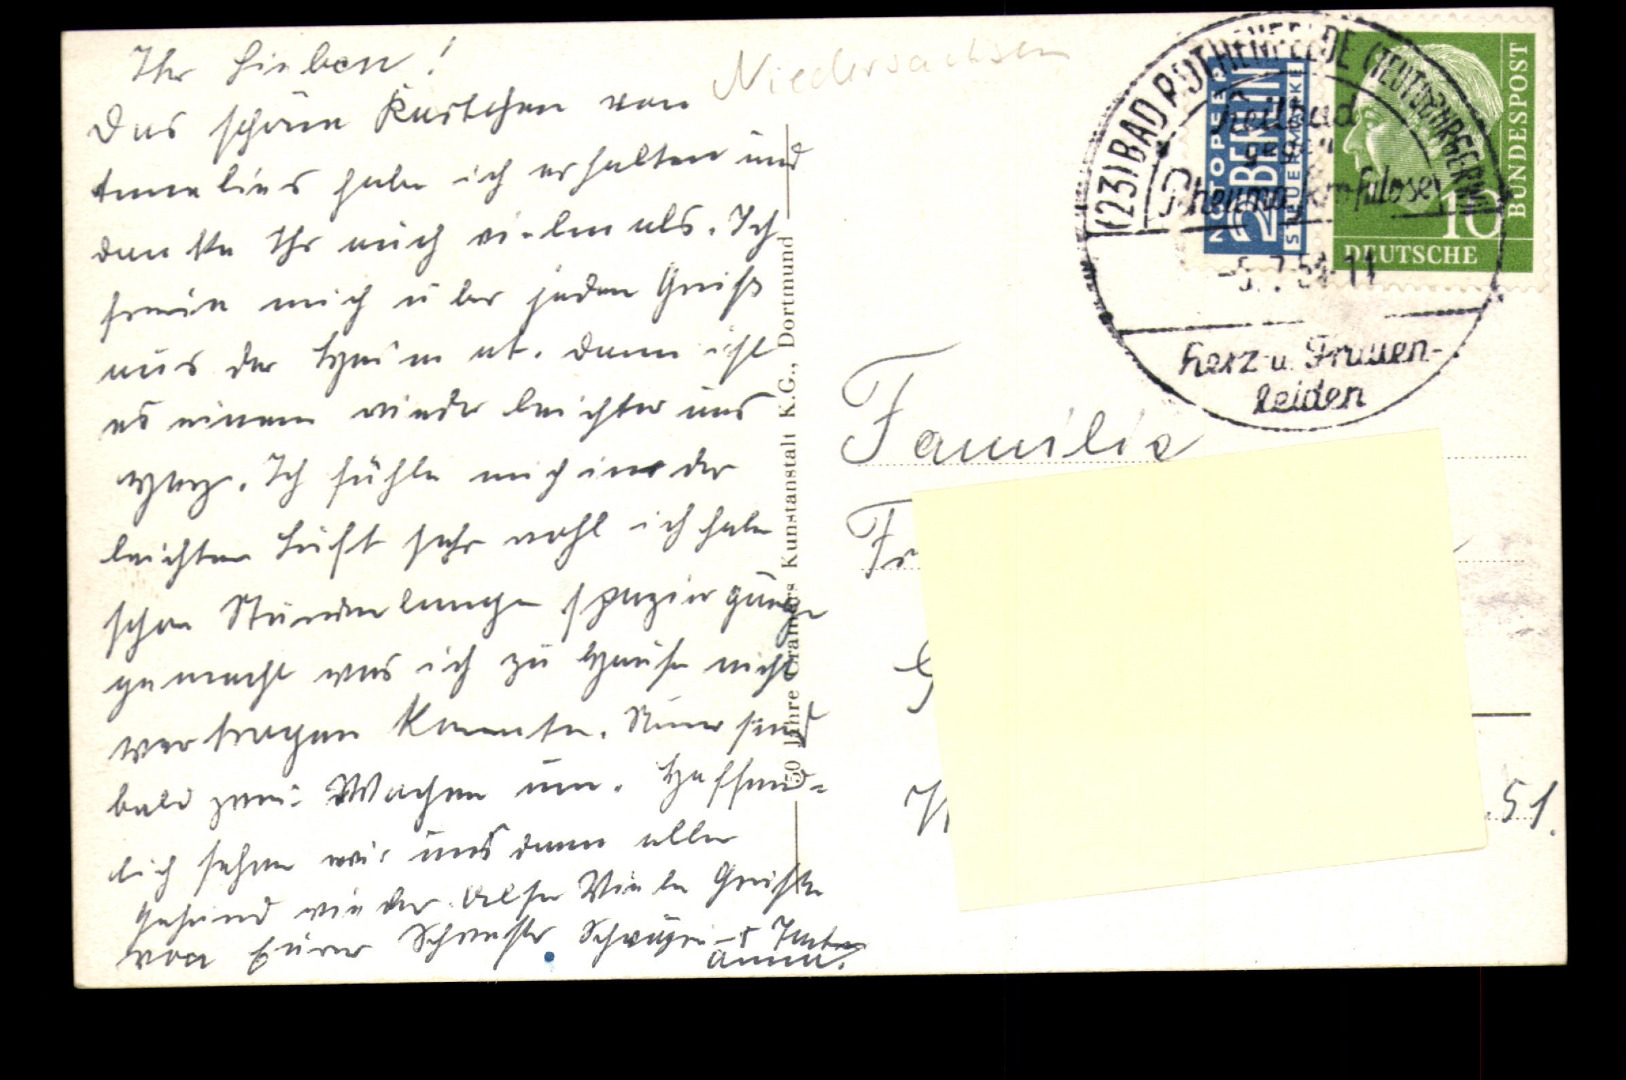 Ihr Lieben!
Das schöne Kärtchen von
Annelies habe ich erhalten und
danke Ihr auch vielmals. Ich
freue mich über jeden Gruß
aus der Heimat. dann ist
es einem wieder leichter ums
Herz. Ich fühle mich in der
leichten Luft sehr wohl ich habe
schon Stundenlange spaziergänge
gemacht was ich zu Hause nicht
vertragen konnte. Nun sind
bald zwei Wochen um. Hoffend-
lich sehen wir uns dann alle
gesund wieder. Also Viele Grüße
von Eurer Schwester Schwägerin u Tante
Anna.
Niedersachsen
50 Jahre Cramers Kunstanstalt K.G., Dortmund
(23) BAD ROTHENFELDE (TEUTOBURGERW)
Heilbad
gegen
Rheuma, Skrofulose,
-5.7.54-11
Herz- u. Frauen-
leiden
NOTOPFER
2 BERLIN
STEUERMARKE
10
DEUTSCHE
BUNDESPOST
Familie
Fr
51.